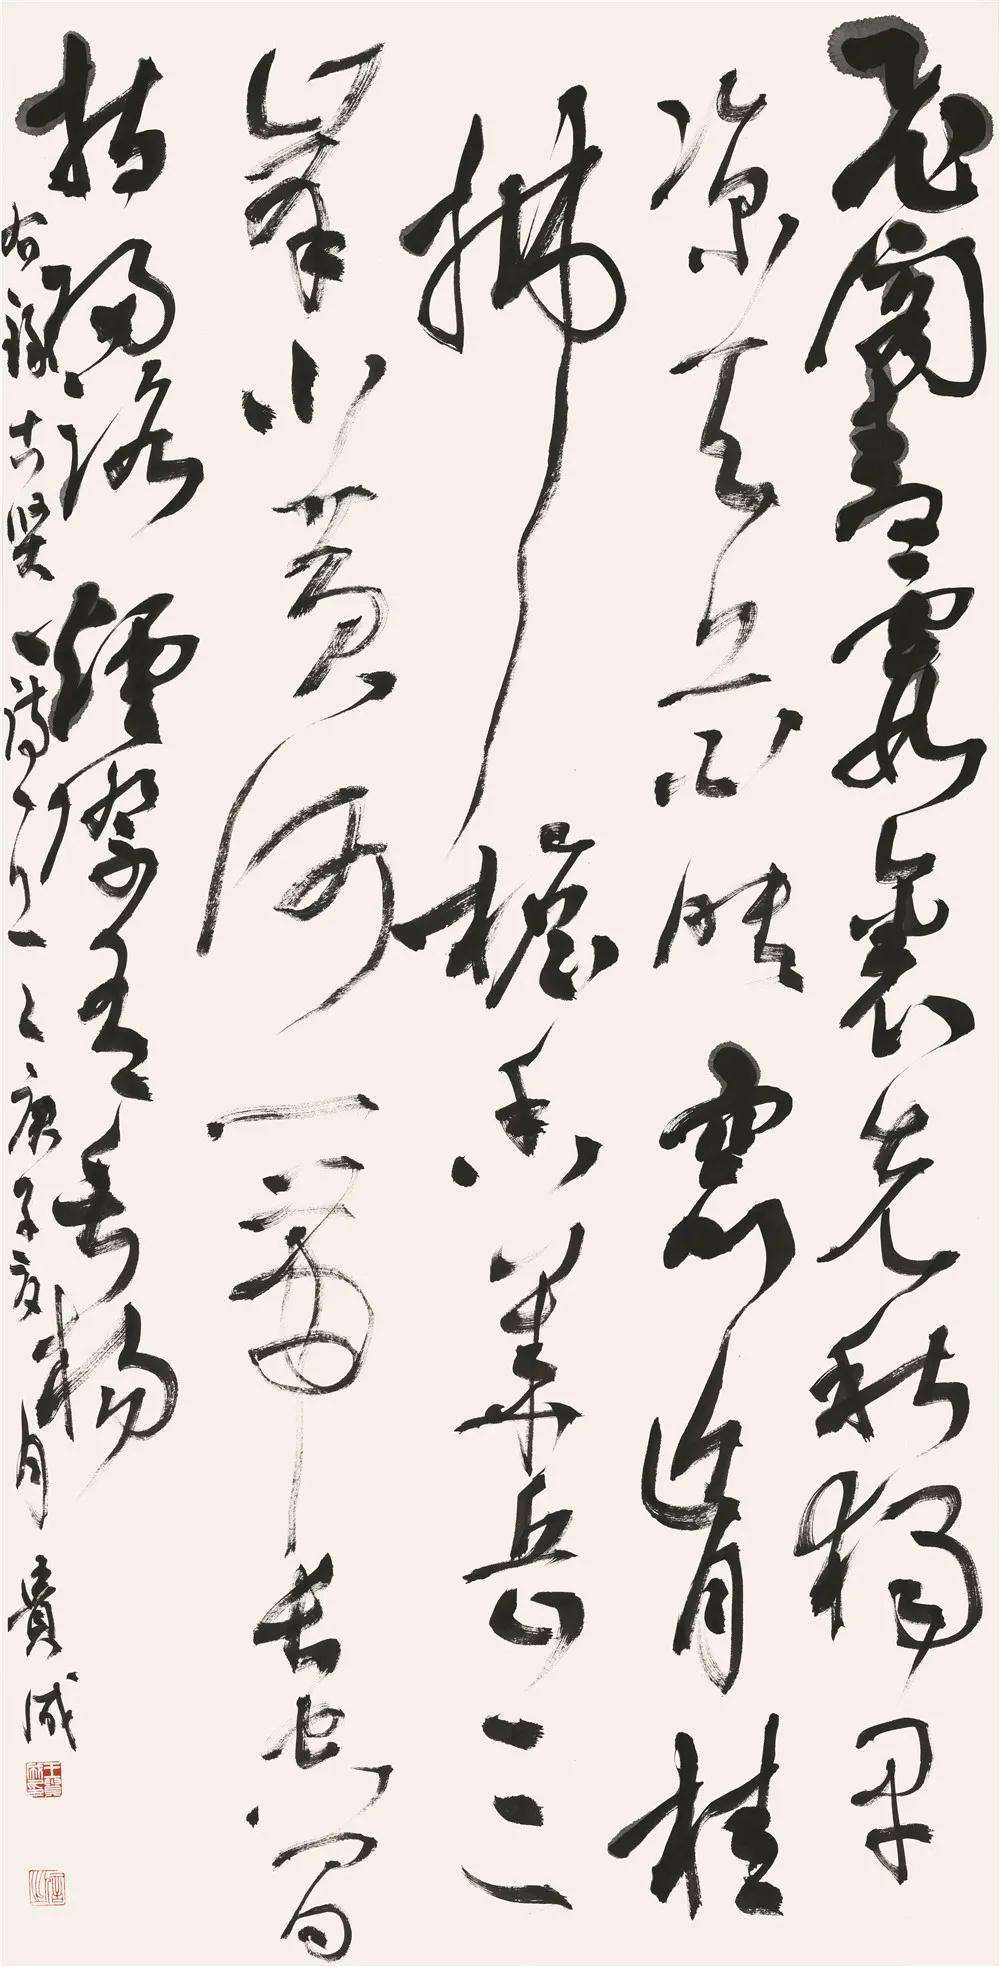 飛閣青霞裏先秋獨早
涼天花映窗近月桂
拂檐香華岳三
峯小黄河一帶長空間
指歸路煙際有垂楊
右錄古賢詩一首 庚子夏月 貴成